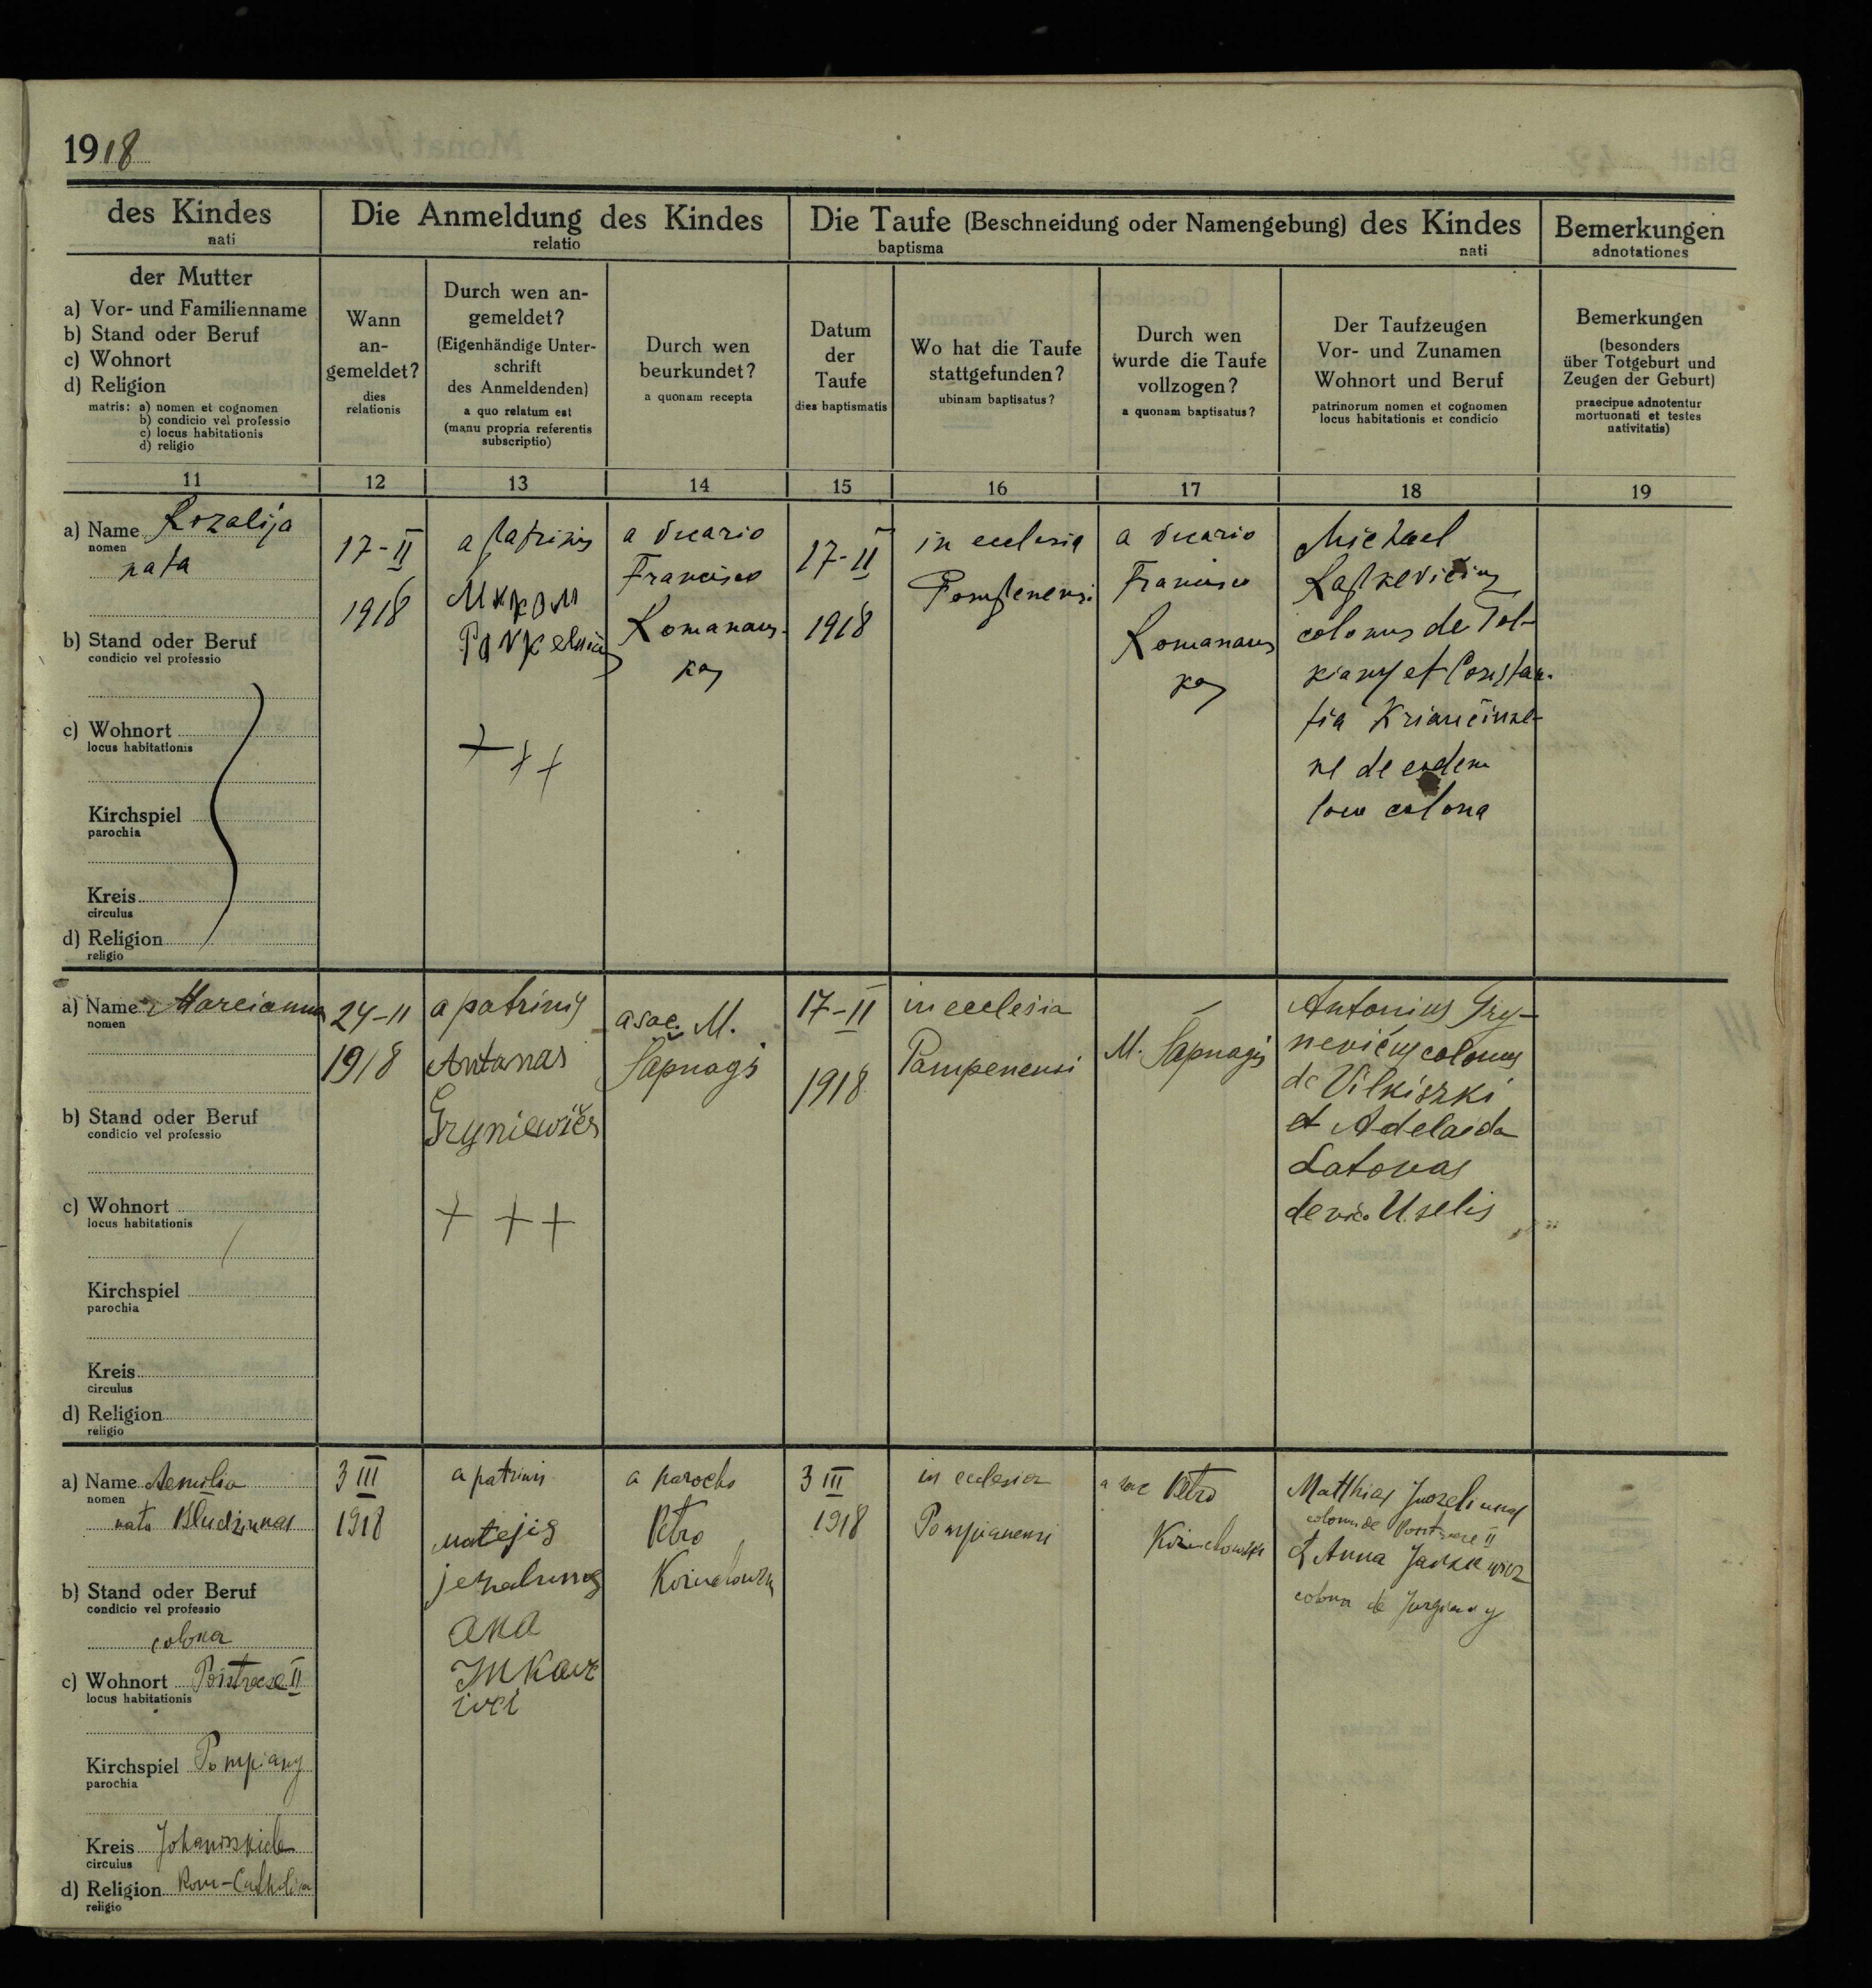 1918
des Kindes
nati
Die Anmeldung des Kindes
relatio
Die Taufe (Beschneidung oder Namengebung) des Kindes
baptisma nati
Bemerkungen
adnotationes
der Mutter
a) Vor- und Familienname
b) Stand oder Beruf
c) Wohnort
d) Religion
matris: a) nomen et cognomen
b) condicio vel professio
c) locus habitationis
d) religio
Wann
an-
gemeldet?
dies
relationis
Durch wen an-
gemeldet?
(Eigenhändige Unter-
schrift
des Anmeldenden)
a quo relatum est
(manu propria referentis
subscriptio)
Durch wen
beurkundet?
a quonam recepta
Datum
der
Taufe
dies baptismatis
Wo hat die Taufe
stattgefunden?
ubinam baptisatus?
Durch wen
wurde die Taufe
vollzogen?
a quonam baptisatus?
Der Taufzeugen
Vor- und Zunamen
Wohnort und Beruf
patrinorum nomen et cognomen
locus habitationis et condicio
Bemerkungen
(besonders
über Totgeburt und
Zeugen der Geburt)
praecipue adnotentur
mortuonati et testes
nativitatis)
11 12 13 14 15 16 17 18 19
a) Name Rozalija
nomen
nata
b) Stand oder Beruf
condicio vel professio
c) Wohnort
locus habitationis
Kirchspiel
parochia
Kreis
circulus
d) Religion
religio
17-II
1918
a patrinis
+++
a vicario
Francisco
Romanaus-
kas
17-II
1918
in ecclesia
Pompenensi
a vicario
Francisco
Romanaus
kas
Michael
colonus de Tol-
kiany et Constan-
tia
ne de eodem
loco colona
a) Name Marcianna
nomen
b) Stand oder Beruf
condicio vel professio
c) Wohnort
locus habitationis
Kirchspiel
parochia
Kreis
circulus
d) Religion
religio
24-II
1918
a patrinis
Antanas
Gryniewičes
+ + +
a sac. M.
Šapnagi
17-II
1918
in ecclesia
Pampenensi
M. Sapnagis
Antonius Gry-
nevičus colonus
de Vilkiszki
et Adelaida
Latonas
de vico Uselis
a) Name Aemilia
nomen
nata Bludzunas
b) Stand oder Beruf
condicio vel professio
colona
c) Wohnort II
locus habitationis
Kirchspiel Pompiany
parochia
Kreis Johanischiele
circulus
d) Religion Rom-Catholica
religio
3 III
1918
a patrinis
matejis
ana
a parocho
Petro
3 III
1918
in ecclesia
Pompianensi
a sac Petro
Matthias
colonus de II
& Anna
colona de Jurgiany